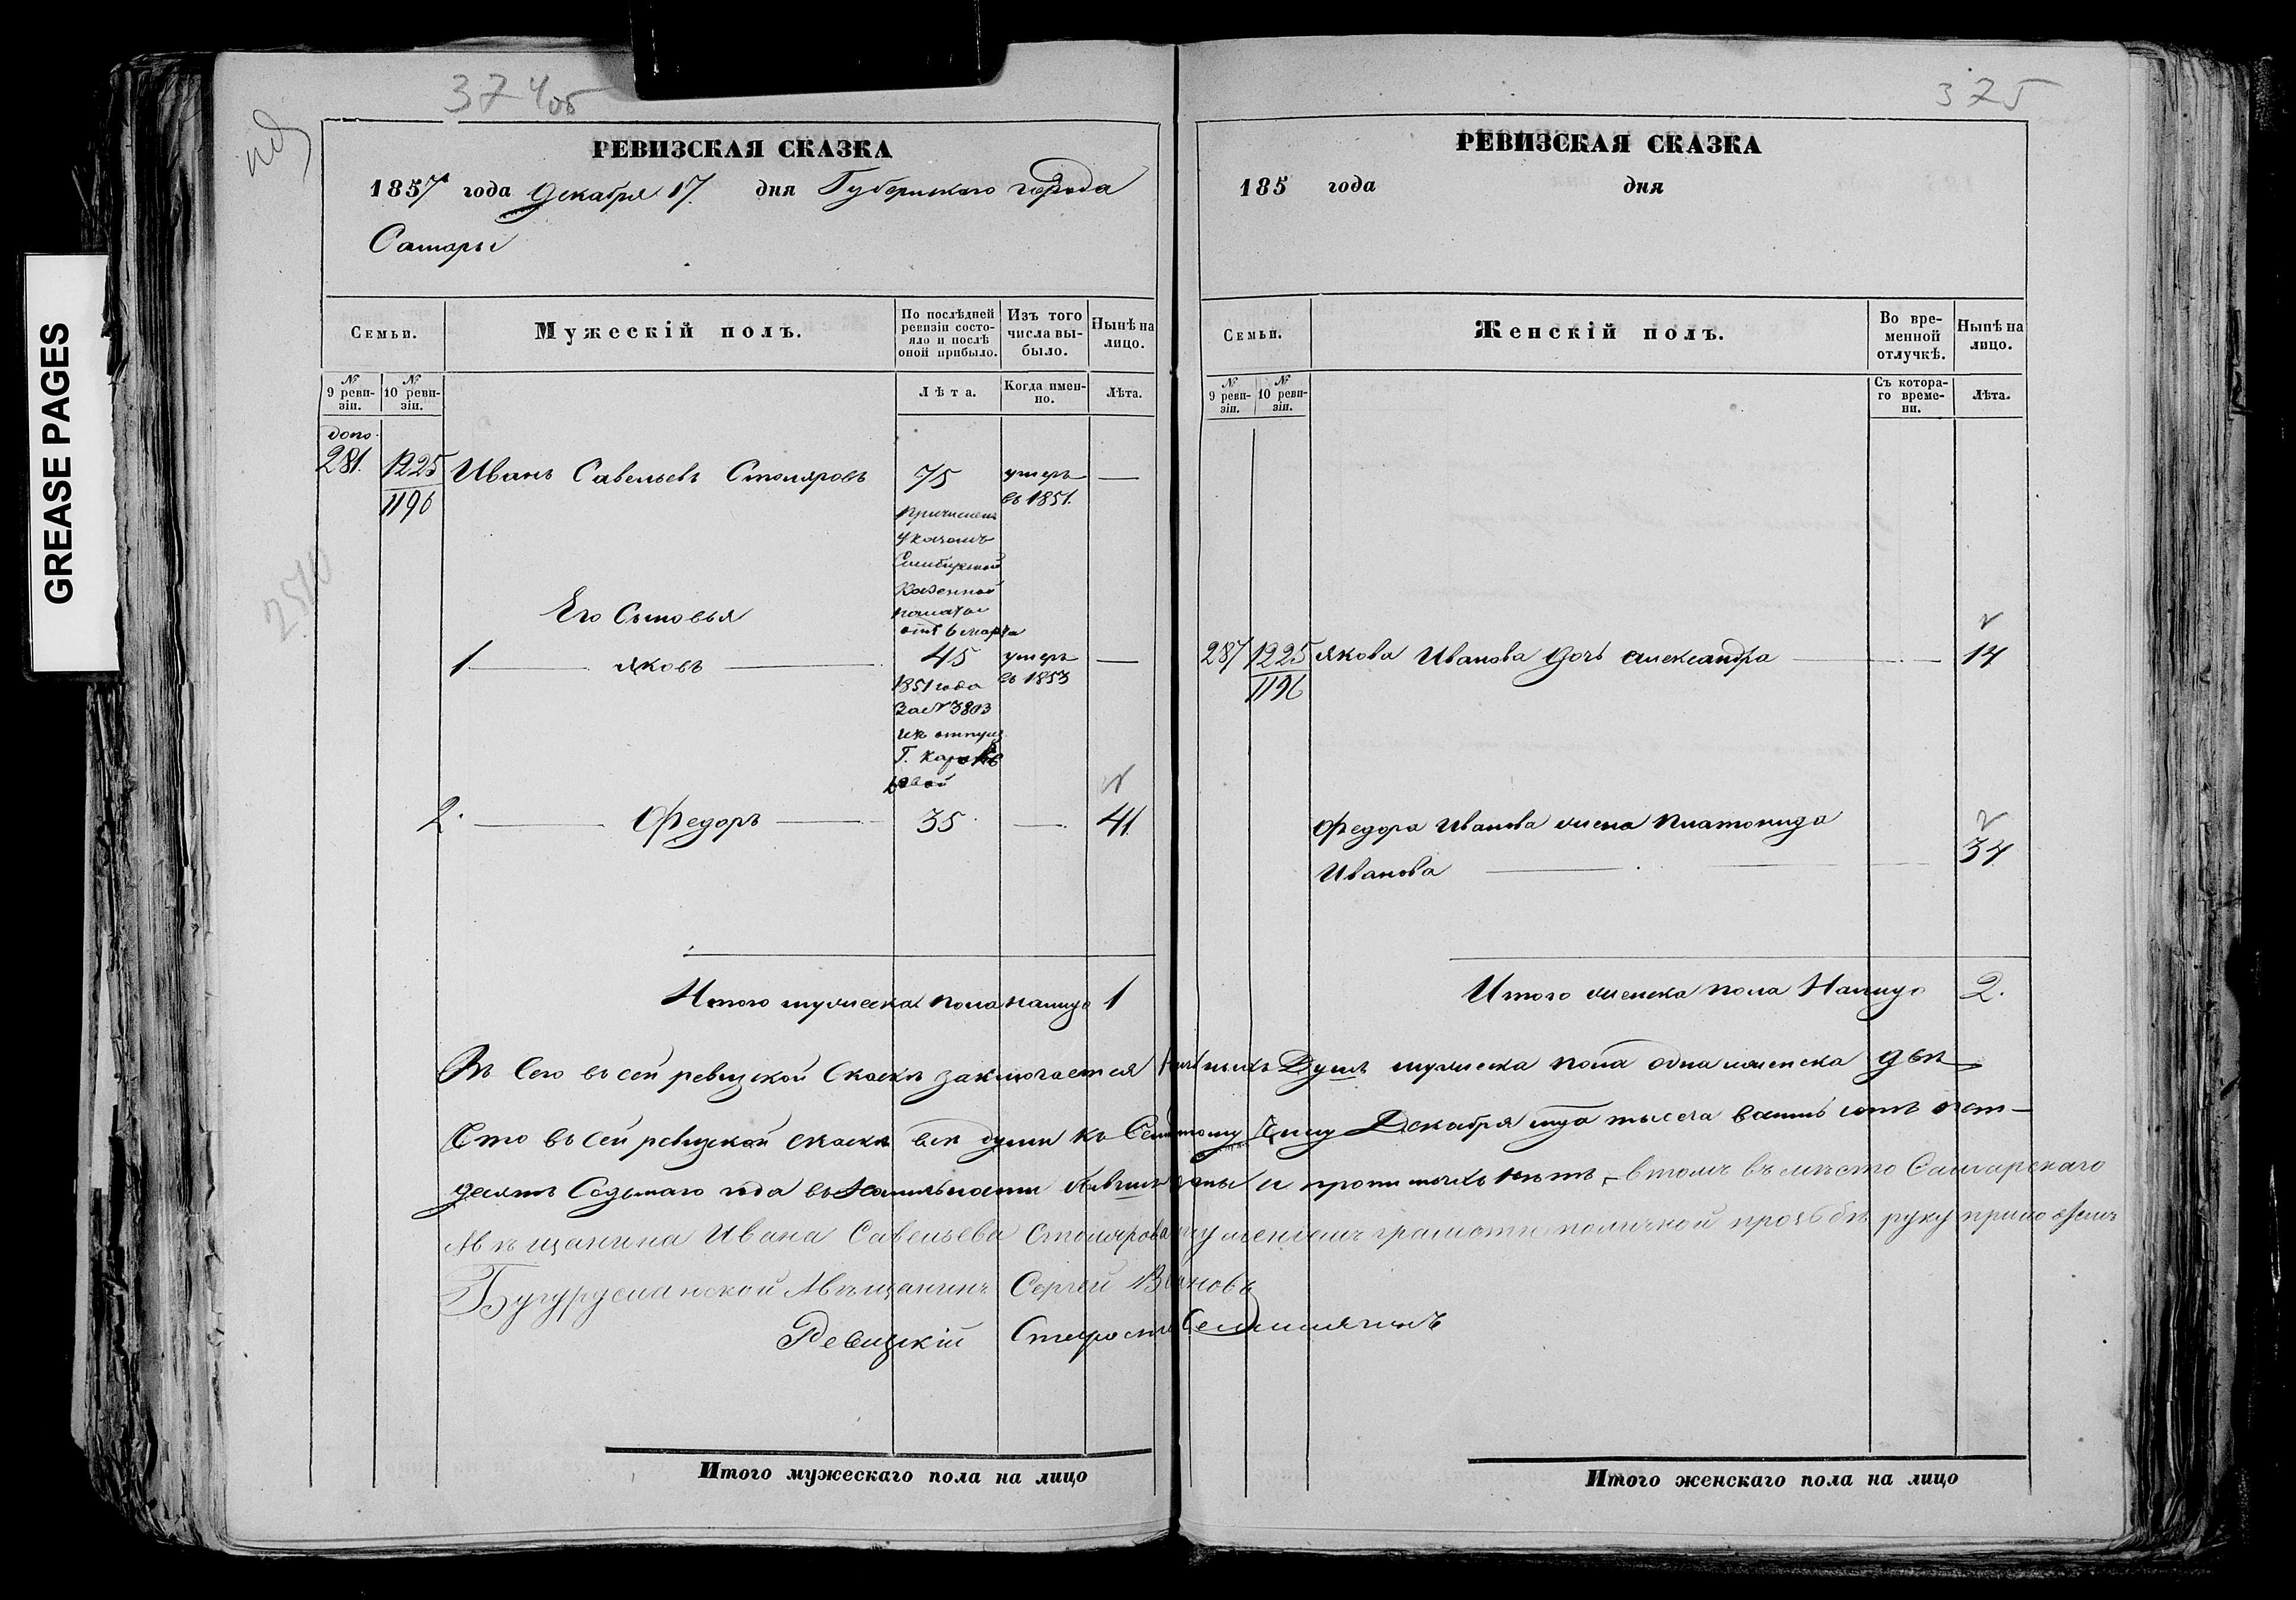 374об
РЕВИЗСКАЯ СКАЗКА
1857 года Декабря 17. дня Губернскаго города
Самары
Семьи.
Мужескій полъ.
По послѣдней ревизіи состояло и послѣ оной прибыло.
Изъ того числа выбыло.
Нынѣ на лицо.
№ 9 ревизіи.
№ 10 ревизіи.
Лѣта.
Когда именно.
Лѣта.
допо
281. 1225 Иванъ Савельевъ Столяровъ 75 умеръ —
1196 въ 1851.
Причисленъ
указомъ
Симбирской
Казенной
Его Сыновья палаты
отъ 6 марта
1 Яковъ 45 умеръ —
1851 года въ 1853
За № 3803
Г.
2. Федоръ 35 — 41
Итого мужеска пола налицо 1
375
РЕВИЗСКАЯ СКАЗКА
185 года дня
Семьи.
Женскій полъ.
Во временной отлучкѣ.
Нынѣ на лицо.
№ 9 ревизіи.
№ 10 ревизіи.
Съ котораго времени.
Лѣта.
287 1225 Якова Иванова дочь Александра — 14
1196
Федора Иванова жена Платонида
Иванова 34
Итого женска пола Налицо 2.
Въ Сего въ сей ревизской Сказкѣ заключается Душъ мужеска пола одна женска двѣ
Что въ сей ревизской сказкѣ всѣ души къ Семнатому Числу Декабря тысеча восемь сотъ
десятъ Седьмаго года и нѣтъ, втомъ въ мѣсто Самарскаго
Мѣщанина Ивана Савельева Столярова грамоти поличной прозьбѣ руку приложилъ
Бугурусланской Мѣщанинъ Сергей
Ревизкій Староста
Итого мужескаго пола на лицо
Итого женскаго пола на лицо
GREASE PAGES